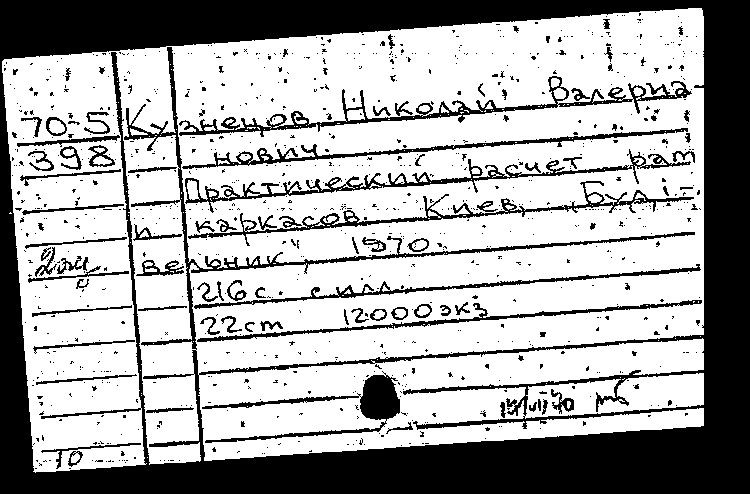 70-5 Кузнецов, Николай Валериа
398 нович.
Практический расчет рам
и каркасов. Киев, „Буді-
2 вельник", 1970.
216 с. с илл.
22 cm 12000 экз
15/VII 70
10